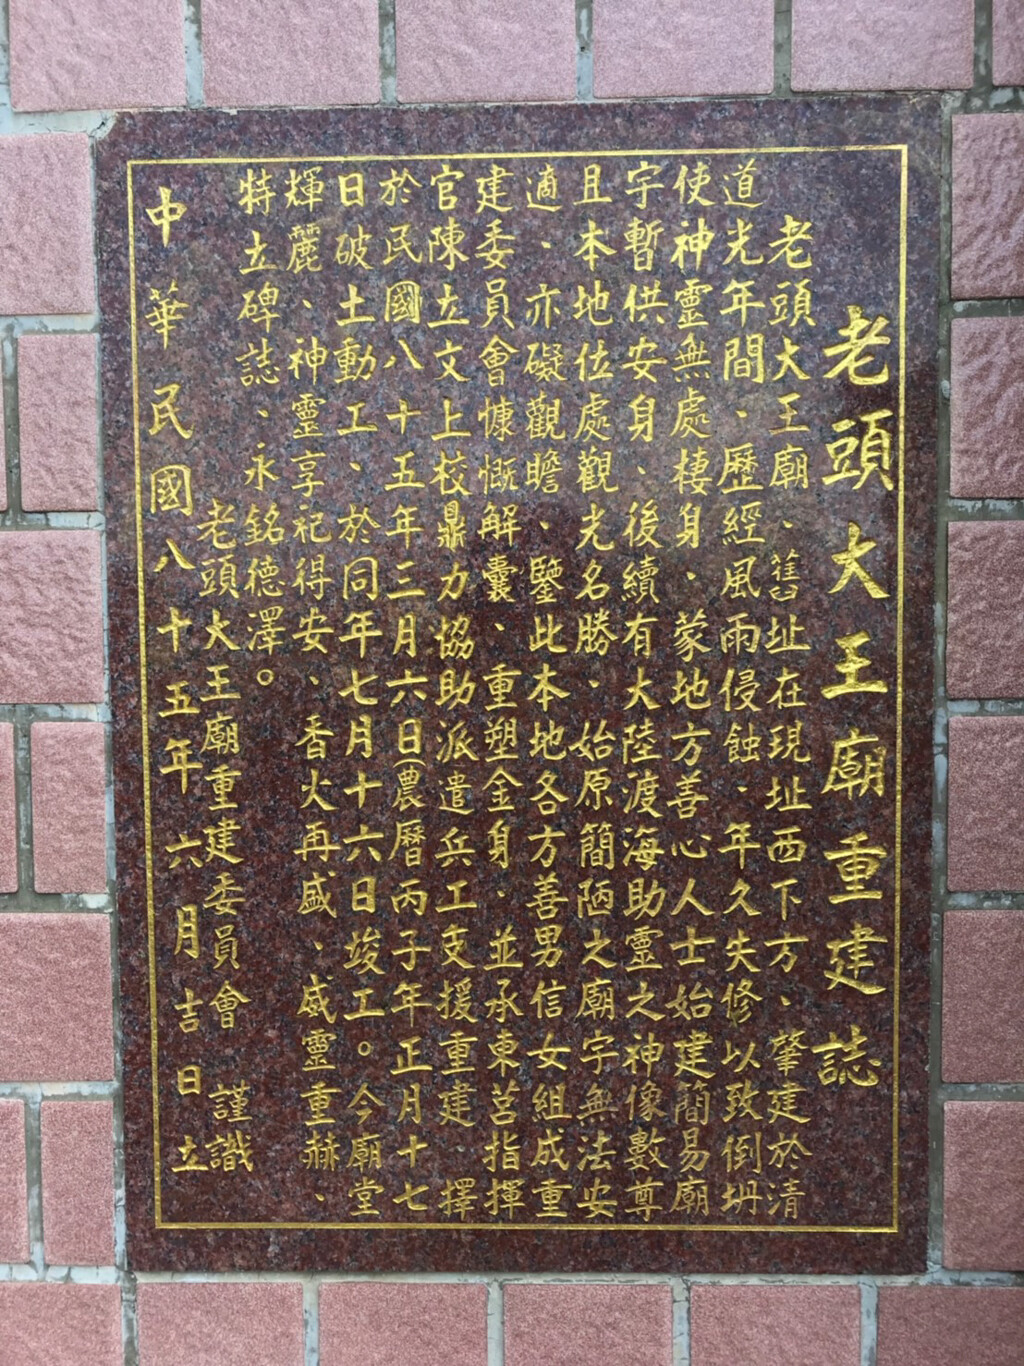 老頭大王廟重建誌
老頭大王廟、舊址在現址西下方、肇建於清
道光年間、歷經風雨侵蝕、年久失修以致倒坍
使神靈無處棲身、蒙地方善心人士始建簡易廟
宇暫供安身、後續有大陸渡海助靈之神像數尊
且本地位處觀光名勝、始原簡陋之廟宇無法安
適、亦礙觀瞻、鑒此本地各方善男信女組成重
建委員會慷慨解囊、重塑金身、並承東莒指揮
官陳立文上校鼎力協助派遣兵工支援重建、擇
於民國八十五年三月六日(農曆丙子年正月十七
日破土動工、於同年七月十六日竣工。今廟堂
輝麗、神靈享祀得安、香火再盛、威靈重赫、
特立碑誌、永銘德澤。
老頭大王廟重建委員會 謹識
中華民國八十五年六月吉日立